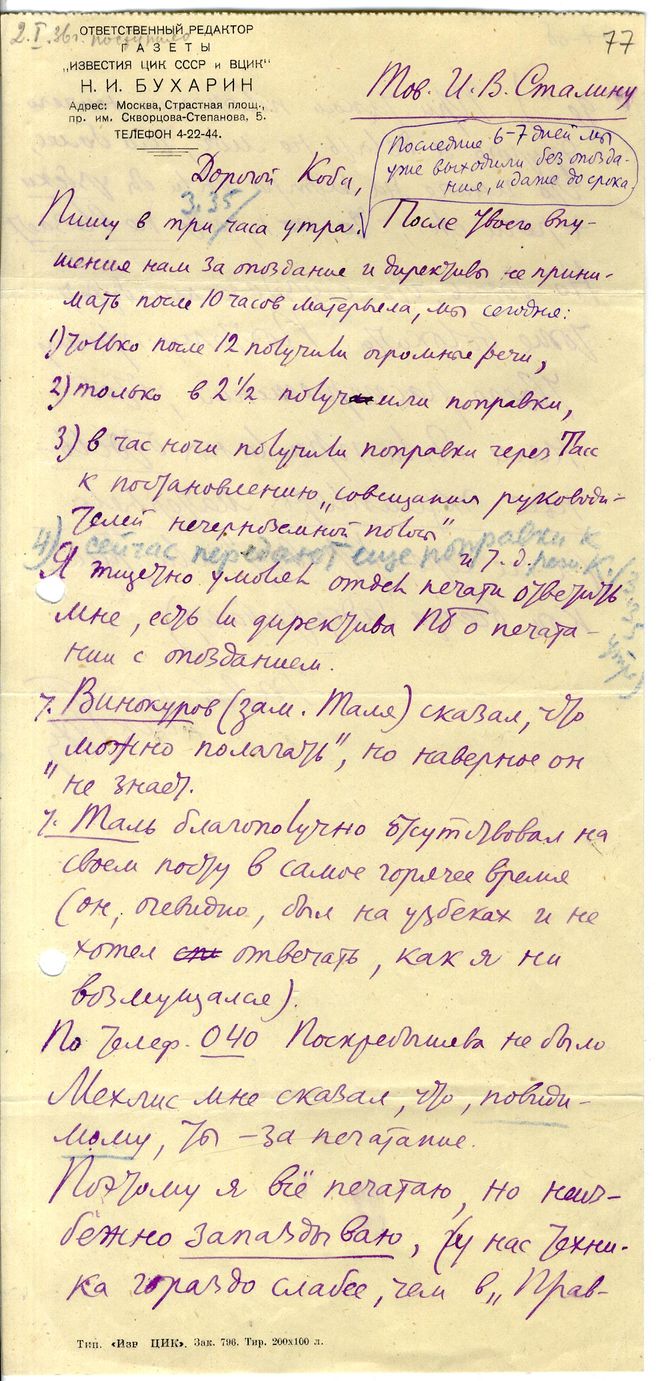 2.I.36г. поступило
77
ОТВЕТСТВЕННЫЙ РЕДАКТОР
ГАЗЕТЫ
„ИЗВЕСТИЯ ЦИК СССР и ВЦИК"
Н. И. БУХАРИН
Адрес: Москва, Страстная площ.,
пр. им. Скворцова-Степанова, 5.
ТЕЛЕФОН 4-22-44.
Тов. И. В. Сталину
Последние 6-7 дней мы
уже выходили без опозда-
ния, и даже до срока.
Дорогой Коба,
3.35
Пишу в три часа утра. После твоего вну-
шения нам за опоздание и директивы не прини-
мать после 10 часов матерьяла, мы сегодня:
1) только после 12 получили огромные речи,
2) только в 2½ получили поправки,
3) в час ночи получили поправки через Тасс
к постановлению „совещания руководи-
телей нечерноземной полосы"
и т. д.
4) сейчас передают еще поправки к
речи К. (3.35
утра)
Я тщетно умолял отдел печати ответить
мне, есть ли директива ПБ о печата-
нии с опозданием.
т. Винокуров (зам. Таля) сказал, что
„можно полагать", но наверное он
не знает.
т. Таль благополучно отсутствовал на
своем посту в самое горячее время
(он, очевидно, был на узбеках и не
хотел отвечать, как я ни
возмущался).
По телеф. 040 Поскребышева не было
Мехлис мне сказал, что, повиди-
мому, ты – за печатание.
Поэтому я всё печатаю, но неиз-
бежно запаздываю, (у нас техни-
ка гораздо слабее, чем в „Прав-
Тип. «Изв ЦИК». Зак. 796. Тир. 200х100 л.